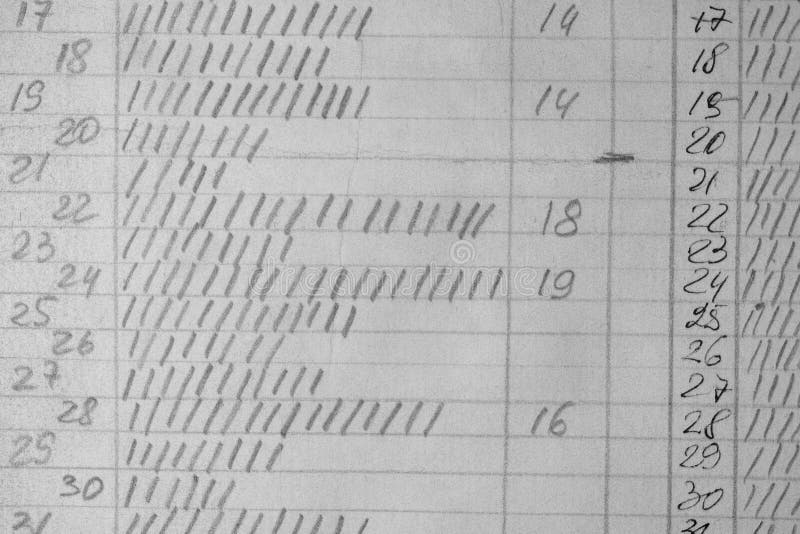 17 14 17
18 18
19 14 19
20 20
21 21
22 18 22
23 23
24 19 24
25 25
26 26
27 27
28 16 28
29 29
30 30
31 31
dreamstime